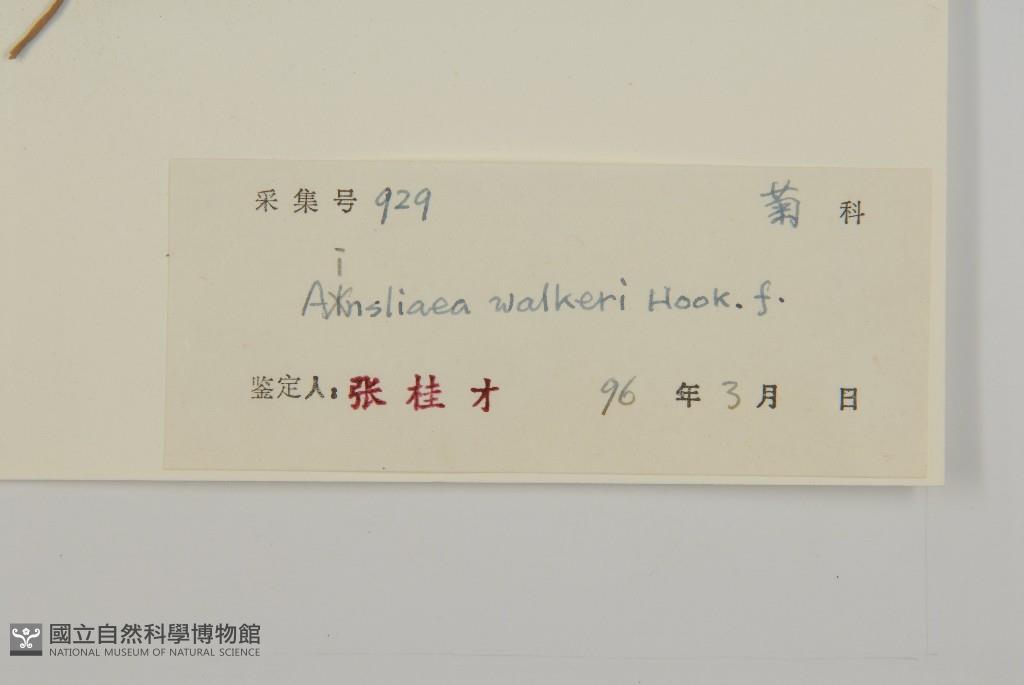 采集号 929 菊 科
Ainsliaea walkeri Hook. f.
鉴定人：张桂才 96 年 3 月 日
國立自然科學博物館
NATIONAL MUSEUM OF NATURAL SCIENCE